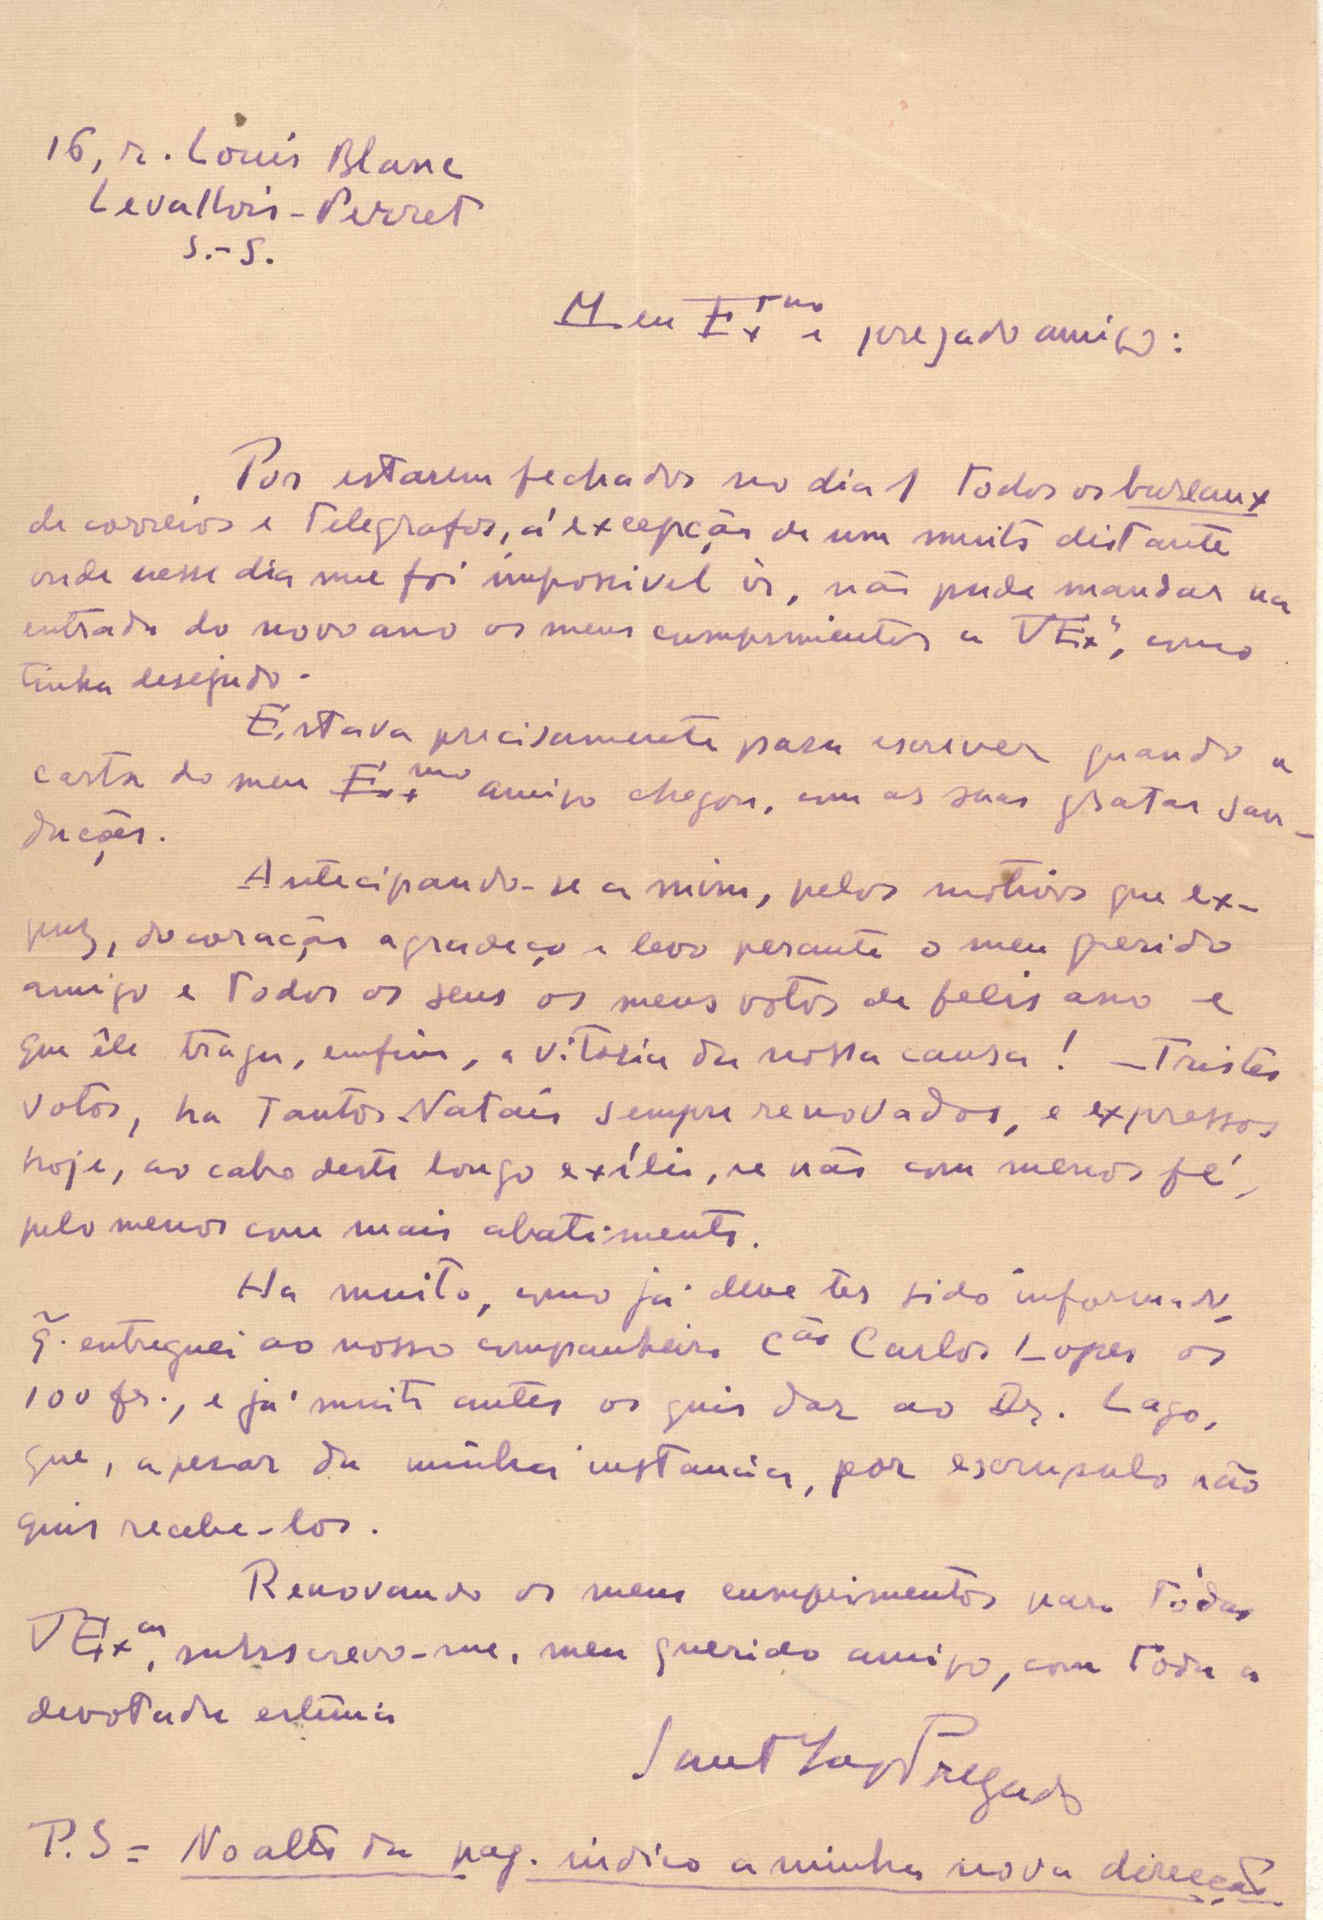 16, r. Louis Blanc
Levallois-Perret
S.-S.
Meu Exmo e prezado amigo:
Por estarem fechados no dia 1 todos os bureaux
de correios e telegrafos, á excepção de um muito distante
onde nesse dia me foi impossivel ir, não pude mandar na
entrada do novo ano os meus cumprimentos a V Exª, como
tinha desejado.
Estava precisamente para escrever quando a
carta do meu Exmo amigo chegou, com as suas gratas sau-
dações.
Antecipando-se a mim, pelos motivos que ex-
puz, do coração agradeço e levo perante o meu querido
amigo e todos os seus os meus votos de felis ano e
que êle traga, enfim, a vitoria da nossa causa! - Tristes
votos, ha tantos Natais sempre renovados, e expressos
hoje, ao cabo deste longo exílio, se não com menos fé,
pelo menos com mais abatimento.
Ha muito, como já deve ter sido informado,
q̃. entreguei ao nosso companheiro Cão Carlos Lopes os
100 fr., e já muito antes os quis dar ao Dr. Lago,
que, apesar da minha instancia, por escrupulo não
quis recebe-los.
Renovando os meus cumprimentos para tódas
V Exas, subscrevo-me, meu querido amigo, com toda a
devotada estima
P.S = No alto da pag. indico a minha nova direcção.